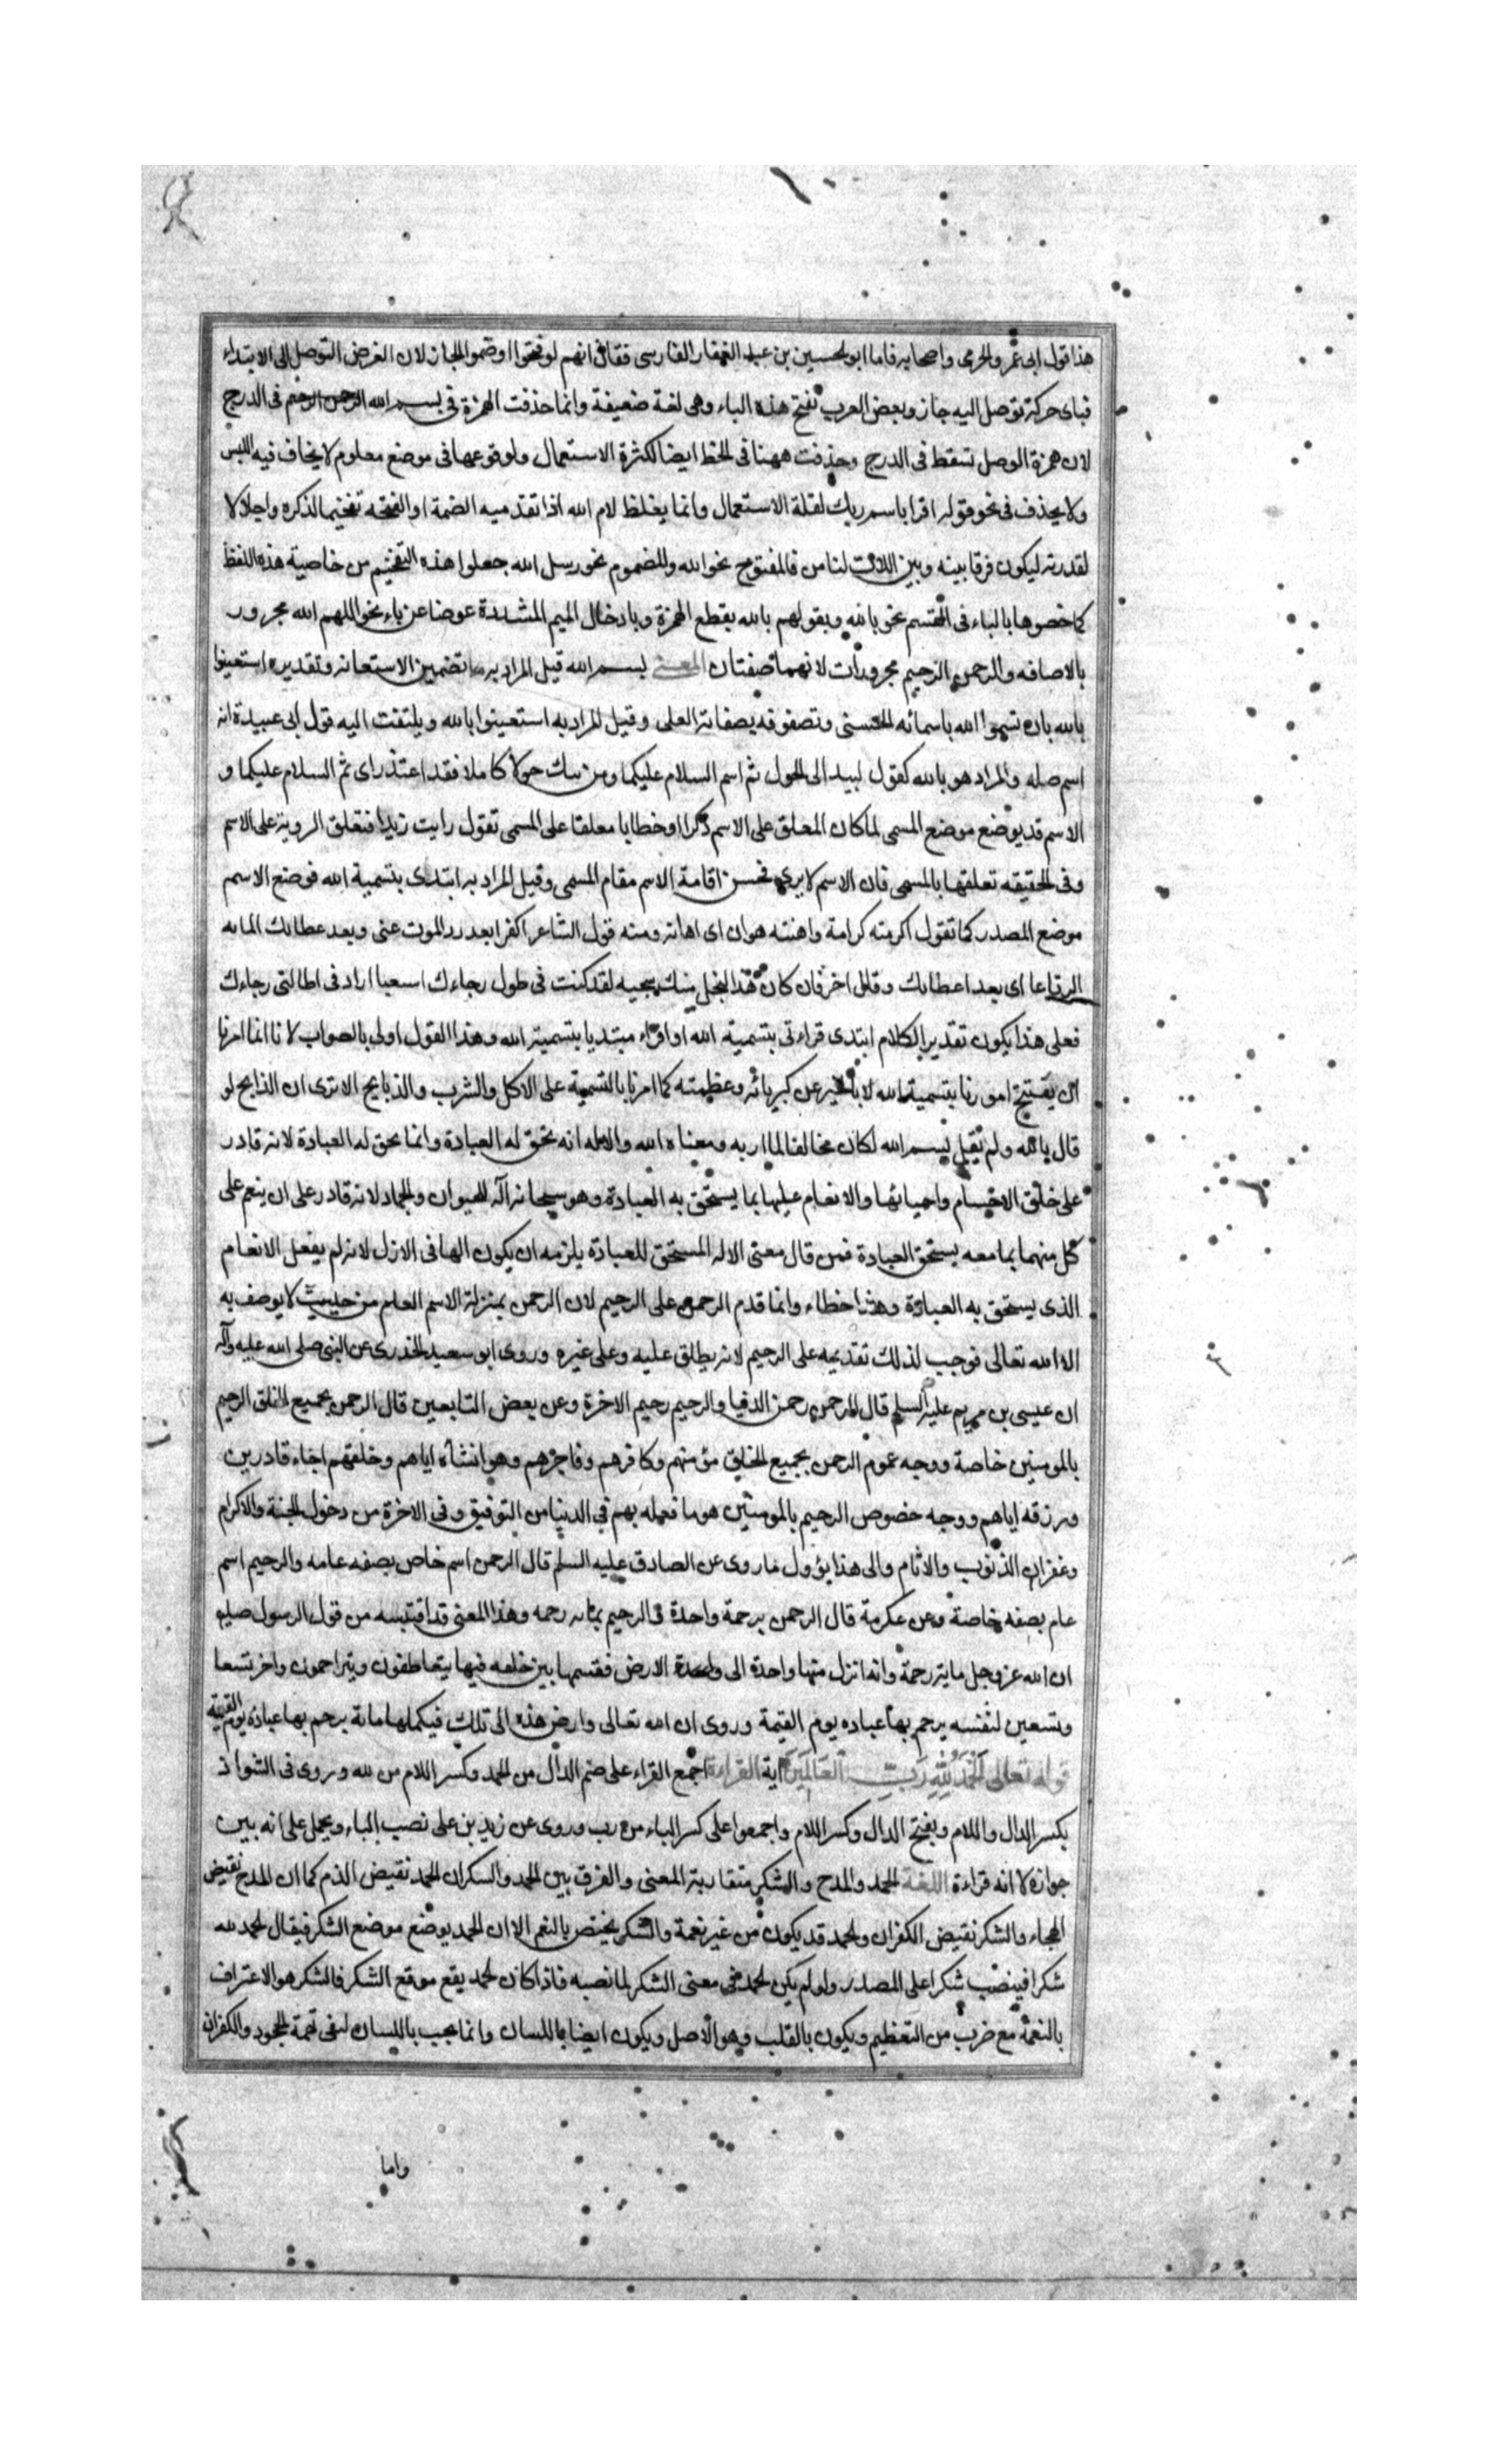 هذا قول ابى عمر والجرمى واصحابه فاما ابو الحسين بن عبد الغفار الفارسى فقال انهم لو فتحوا او ضموا لجاز لان الغرض التوصل الى الابتداء
فباى حركة توصل اليه جاز وبعض العرب تفتح هذه الباء وهى لغة ضعيفة وانما حذفت الهمزة فى بسم الله الرحمن الرحيم فى الدرج
لان همزة الوصل تسقط فى الدرج وحذفت ههنا فى الخط ايضا لكثرة الاستعمال ولوقوعها فى موضع معلوم لا يخاف فيه اللبس
ولا يحذف فى نحو قوله اقرا باسم ربك لقلة الاستعمال وانما يغلظ لام الله اذا تقدميه الضمة او الفتحه تفخيما لذكره واجلالا
لقدرته ليكون فرقا بينه وبين اللات لنا من فالمفتوح نحو الله والمضموم نحو رسل الله جعلوا هذه التفخيم من خاصية هذه اللفظ
كما خصوها بالباء فى القسم نحو بالله وبقولهم يالله بقطع الهمزة وبادخال الميم المشددة عوضا عن ياء نحو اللهم الله مجرور
بالاضافه والرحمن الرحيم مجرورات لانهما صفتان المعنى بسم الله قيل المراد به تضمين الاستعانه وتقديره استعينوا
بالله بان تسموا الله باسمائه الحسنى وتصفوفه بصفاته العلى وقيل المراد به استعينوا بالله ويلتفت اليه قول ابى عبيدة انه
اسم صله والمراد هو بالله كقول لبيد الى الحول ثم اسم السلام عليكما ومن يبك حولا كاملا فقد اعتذر اى ثم السلام عليكما و
الاسم قد يوضع موضع المسمى لما كان المعلق على الاسم ذكرا او خطابا معلقا على المسمى تقول رايت زيدا فتعلق الروية على الاسم
وفى الحقيقه تعلقها بالمسمى فان الاسم لا يرى فحسن اقامة الاسم مقام المسمى وقيل المراد به ابتدى بتسمية الله فوضع الاسم
موضع المصدر كما تقول اكرمته كرامة واهنته هوان اى اهانه ومنه قول الشاعر اكفرا بعد رد الموت عنى وبعد عطائك المائه
الرتاعا اى بعد اعطائك وقال اخر فان كان هذا البخل منك سجيه لقد كنت فى طول رجاءك اسعبا اراد فى اطالتى رجاءك
فعلى هذا يكون تقدير الكلام ابتدى قراءتى بتسمية الله او اقراء مبتديا بتسمية الله وهذا القول اولى بالصواب لانا انما امرنا
ان يفتتح امورنا بتسمية الله لا بالخبر عن كبريائه وعظمته كما امرنا بالتسمية على الاكل والشرب والذبايح الا ترى ان الذابح لو
قال بالله ولم يقل بسم الله لكان مخالفا لما امر به ومعناه الله والاله انه تحق له العبادة وانما يحق له العبادة لانه قادر
على خلق الاجسام واحيائها والانعام عليها بما يستحق به العبادة وهو سبحانه اله للحيوان والجماد لانه قادر على ان ينعم على
كل منهما بما معه يستحق العبادة فمن قال معنى الاله المستحق للعبادة يلزمه ان يكون الها فى الازل لانه لم يفعل الانعام
الذى يستحق به العبادة وهذا خطاء وانما قدم الرحمن على الرحيم لان الرحمن بمنزلة الاسم العلم من حيث لا يوصف به
الا الله تعالى فوجب لذلك تقديمه على الرحيم لانه يطلق عليه وعلى غيره وروى ابو سعيد الخدرى عن النبى صلى الله عليه وآله
ان عيسى بن مريم عليه السلم قال الرحمن رحمن الدنيا والرحيم رحيم الاخرة وعن بعض التابعين قال الرحمن بجميع الخلق الرحيم
بالمومنين خاصة ووجه عموم الرحمن بجميع الخلق مؤمنهم وكافرهم وفاجرهم وهو انشآه اياهم وخلقهم احياء قادرين
ورزقه اياهم ووجه خضوص الرحيم بالمومنين هو ما فعله بهم فى الدنيا من التوفيق وفى الاخرة من دخول الجنة والاكرام
وغفران الذنوب والاثام والى هذا يؤول ما روى عن الصادق عليه السلم قال الرحمن اسم خاص بصفه عامه والرحيم اسم
عام بصفه خاصة وعن عكرمة قال الرحمن برحمة واحدة والرحيم بمائه رحمه وهذا المعنى قد اقتبسه من قول الرسول صلعم
ان الله عز وجل مايه رحمة وانه انزل منها واحدة الى الارض فقسمها بين خلقه فيها يتعاطفون ويتراحمون واخر تسعا
وتسعين لنفسه يرحم بها عباده يوم القيمة وروى ان الله تعالى وارض هذه الى تلك فيكملها مائة يرحم بها عباده يوم القيمة
قوله تعالى الحمد لله رب العالمين اية القراءة اجمع القراء على ضم الدال من الحمد وكسر اللام من لله وروى فى الشواذ
بكسر الدال واللام وبفتح الدال وكسر اللام واجمعوا على كسر الباء من رب وروى عن زيد بن على نصب الباء ويحمل على انه بين
جوازه لا انه قراءة اللغة الحمد والمدح والشكر متقاربة المعنى والفرق بين الحمد والشكر ان الحمد نقيض الذم كما ان المدح نقيض
الهجاء والشكر نقيض الكفران والحمد قد يكون من غير نعمة والشكر يختص بالنعم الا ان الحمد يوضع موضع الشكر فيقال الحمد لله
شكرا فينصب شكرا على المصدر ولو لم يكن الحمد فى معنى الشكر لما نصبه فاذا كان الحمد يقع موقع الشكر فالشكر هو الاعتراف
بالنعمة مع ضرب من التعظيم ويكون بالقلب وهو الاصل ويكون ايضا باللسان وانما يجب باللسان لنفى تهمة الجحود والكفران
واما